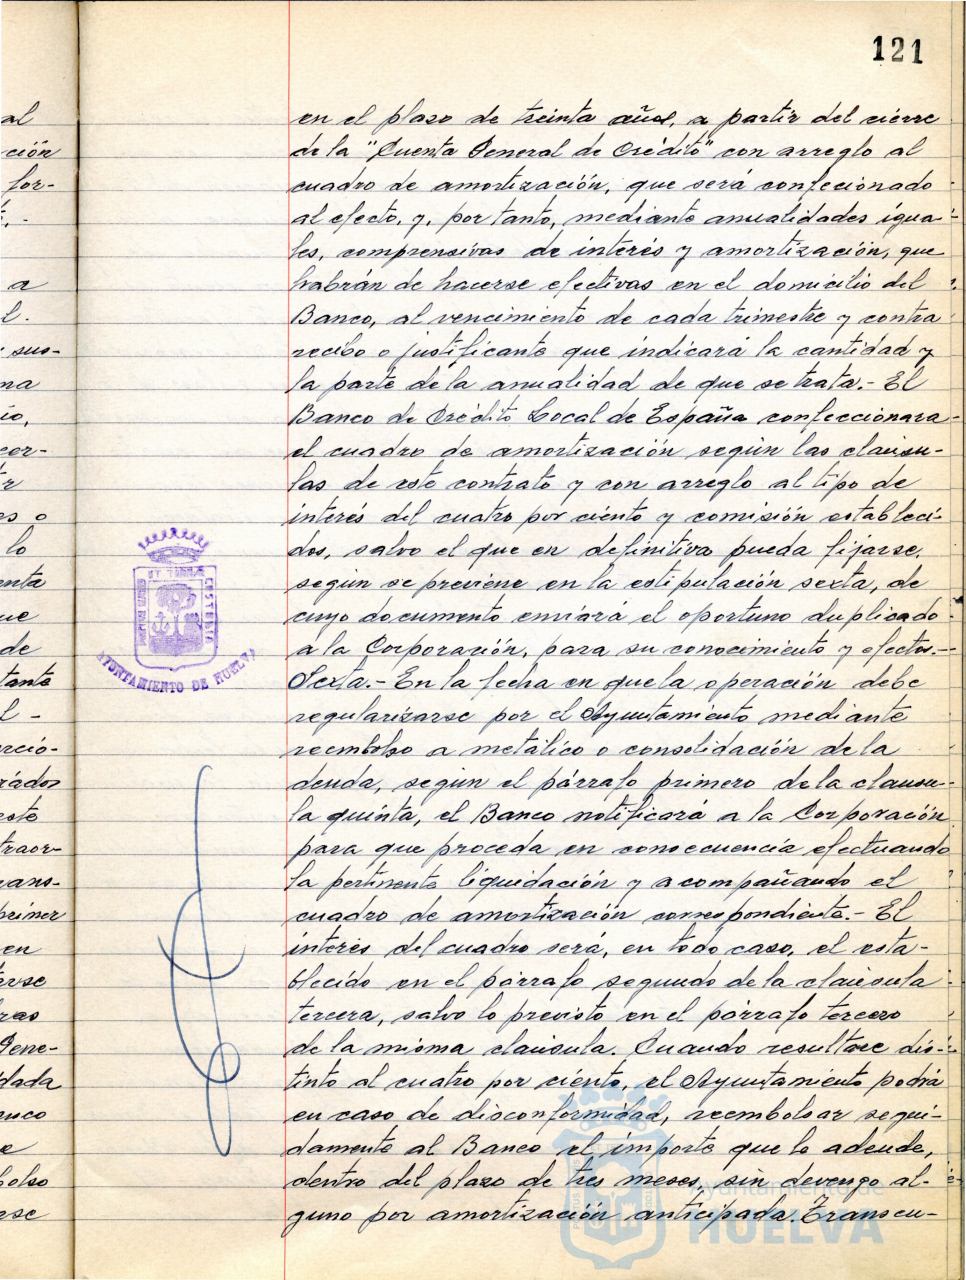 121
en el plazo de treinta años, a partir del cierre
de la "Cuenta General de Crédito" con arreglo al
cuadro de amortización, que será confecionado
al efecto, y, por tanto, mediante anualidades igua-
les, comprensivas de interés y amortización, que
habrán de hacerse efectivas en el domicilio del
Banco, al vencimiento de cada trimestre y contra
recibo o justificante que indicará la cantidad y
la parte de la anualidad de que se trata.- El
Banco de Crédito Local de España confeccionara
el cuadro de amortización según las clausu-
las de este contrato y con arreglo al tipo de
interés del cuatro por ciento y comisión estableci-
dos, salvo el que en definitiva pueda fijarse,
según se previene en la estipulación sexta, de
cuyo documento enviará el oportuno duplicado
a la Corporación, para su conocimiento y efectos.-
Sexta.- En la fecha en que la operación debe
regularizarse por el Ayuntamiento mediante
reembolso a metálico o consolidación de la
deuda, según el párrafo primero de la clausu-
la quinta, el Banco notificará a la Corporación
para que proceda en consecuencia efectuando
la pertinente liquidación y acompañando el
cuadro de amortización correspondiente.- El
interés del cuadro será, en todo caso, el esta-
blecido en el párrafo segundo de la clausula
tercera, salvo lo previsto en el párrafo tercero
de la misma clausula. Cuando resultare dis-
tinto al cuatro por ciento, el Ayuntamiento podrá
en caso de disconformidad, reembolsar segui-
damente al Banco el importe que le adeude,
dentro del plazo de tres meses, sin devengo al-
guno por amortización anticipada. Transcu-
al
ción
for-
a
l.
sus-
na
io,
cer-
r
es o
lo
enta
ue
de
tante
l -
rcio-
rados
este
traor-
rans-
primer
en
terse
ras
Gene-
dada
anco
e
bolso
rse
AYUNTAMIENTO DE HUELVA
Ayuntamiento de
HUELVA